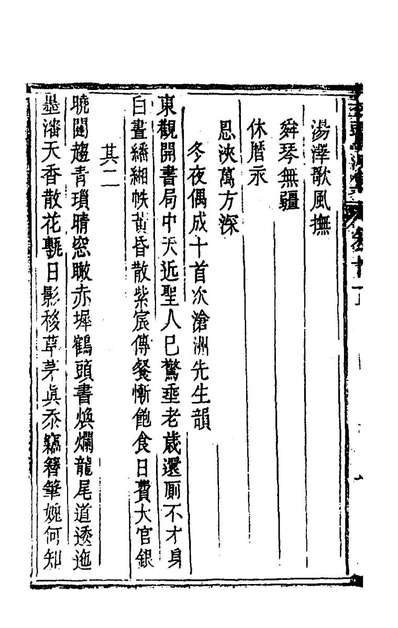 湯澤歌風撫
舜琴無疆
休曆永
恩浹萬方深
冬夜偶成十首次滄洲先生韻
東觀開書局中天近聖人已驚垂老歲還厠不才身
白晝繙緗帙黃昏散紫宸傳餐慚飽食日費大官銀
其二
曉闥趨青瑣晴窓瞰赤墀鶴頭書煥爛龍尾道逶迤
墨瀋天香散花甎日影移草茅眞忝竊簪筆娩何知